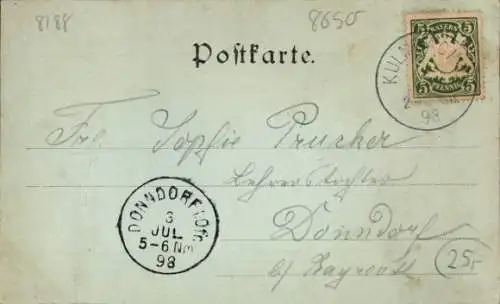 8188
8650
Postkarte.
BAYERN
5 5
PFENNIG
5 5
KUL
98
Frl. Sophie Prucker
Lehrerstochter
Donndorf
b/ Bayreuth
DONNDORF
3
JUL
5-6 Nm
98
25,-